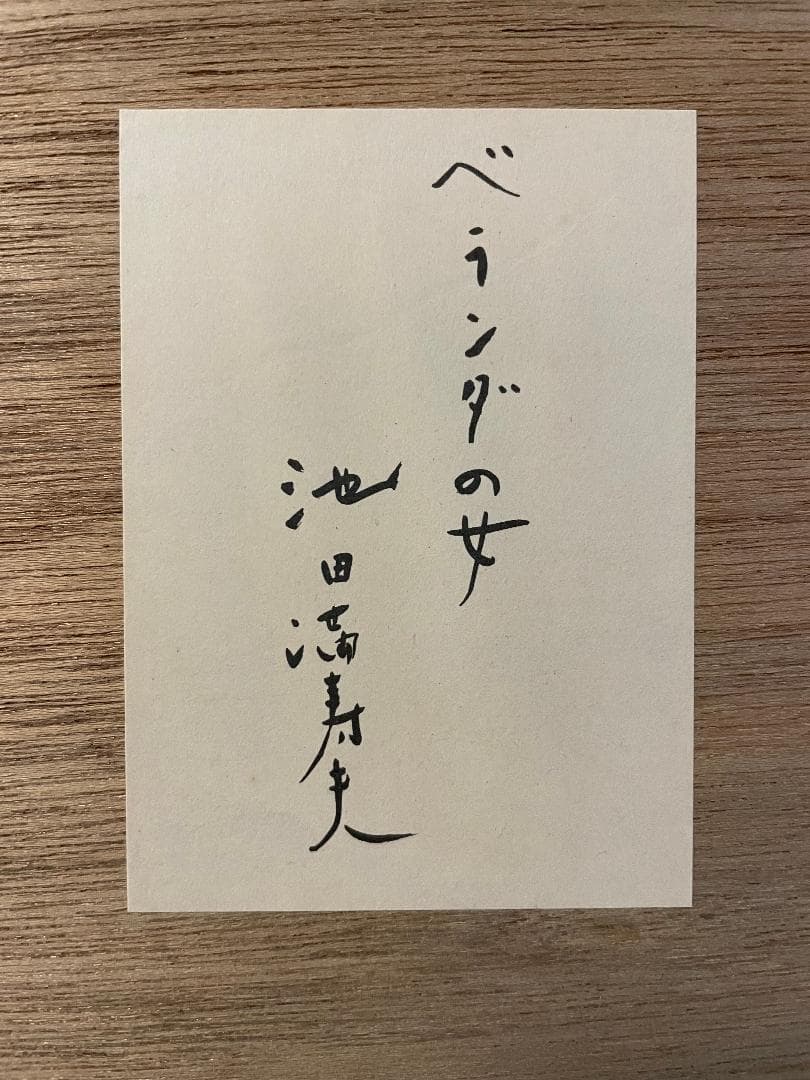 ベランダの女
池田満寿夫